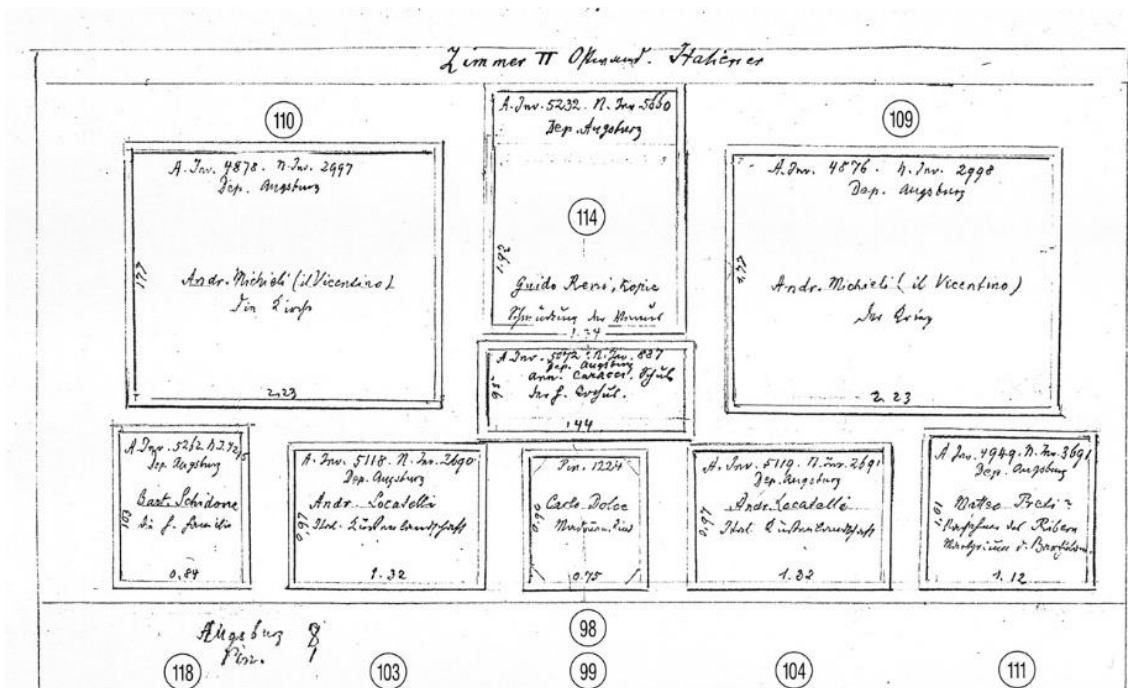 Zimmer II Ostwand. Italiener
110
A. Inv. 4878. N. Inv. 2997
Dep. Augsburg
177
Andr. Michieli (il Vicentino)
Die
2.23
A. Inv. 5232. N. Inv. 5660
Dep. Augsburg
114
1.92
Guido Reni, Kopie
Schmückung der Venus
1.34
109
A. Inv. 4876. N. Inv. 2998
Dep. Augsburg
1.77
Andr. Michieli (il Vicentino)
Der Krieg
2.23
A. Inv. 5072. N. Inv. 887
Dep. Augsburg
Ann. Caracci, Schule
der h.
95
144
A. Inv. 5262. N. I.
Dep. Augsburg
Bart. Schidone
die h. Familie
103
0.84
A. Inv. 5118. N. Inv. 2690
Dep. Augsburg
Andr. Locatelli
Ital. Küstenlandschaft
0.97
1.32
Pin. 1224
Carlo Dolce
0.90
0.75
A. Inv. 5119. N. Inv. 2691
Dep. Augsburg
Andr. Locatelli
Ital. Küstenlandschaft
0.97
1.32
A. Inv. 4949. N. Inv. 3691
Dep. Augsburg
Matteo Preti?
des Ribera
Martyrium d. Bartholom.
1.01
1.12
Augsburg 8
Pin. 1
118
103
98
99
104
111